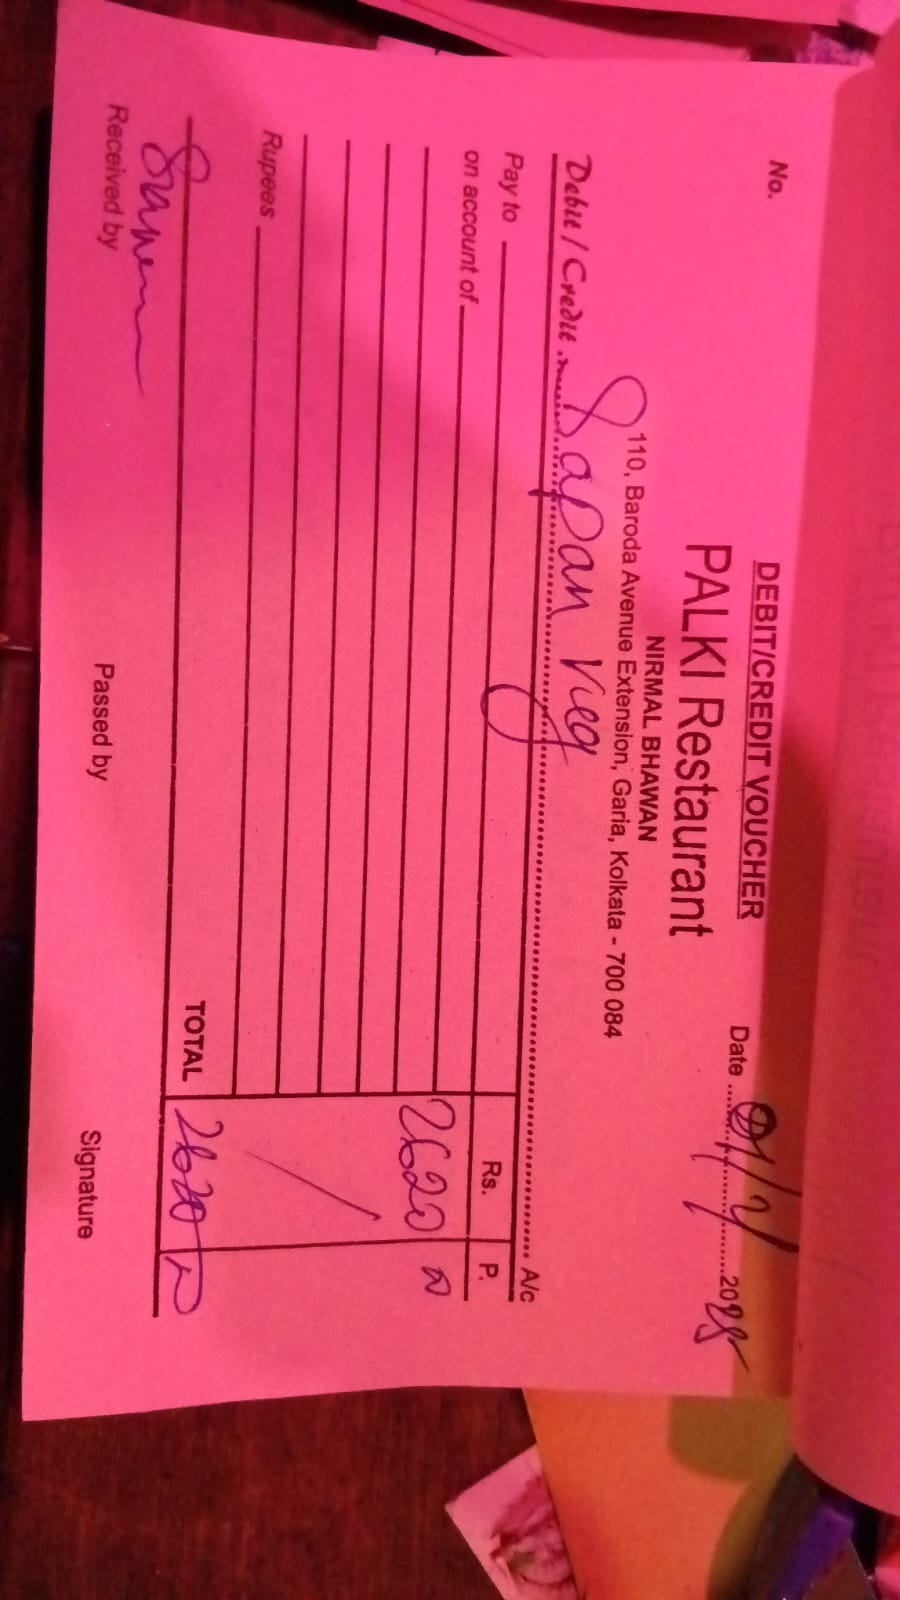 DEBIT/CREDIT VOUCHER
No.
Date ............ 2025
PALKI Restaurant
NIRMAL BHAWAN
110, Baroda Avenue Extension, Garia, Kolkata - 700 084
Debit / Credit ............ Sapan Veg ............ A/c
Pay to Rs. P.
on account of
2620
Rupees
TOTAL 2620
Received by Passed by Signature